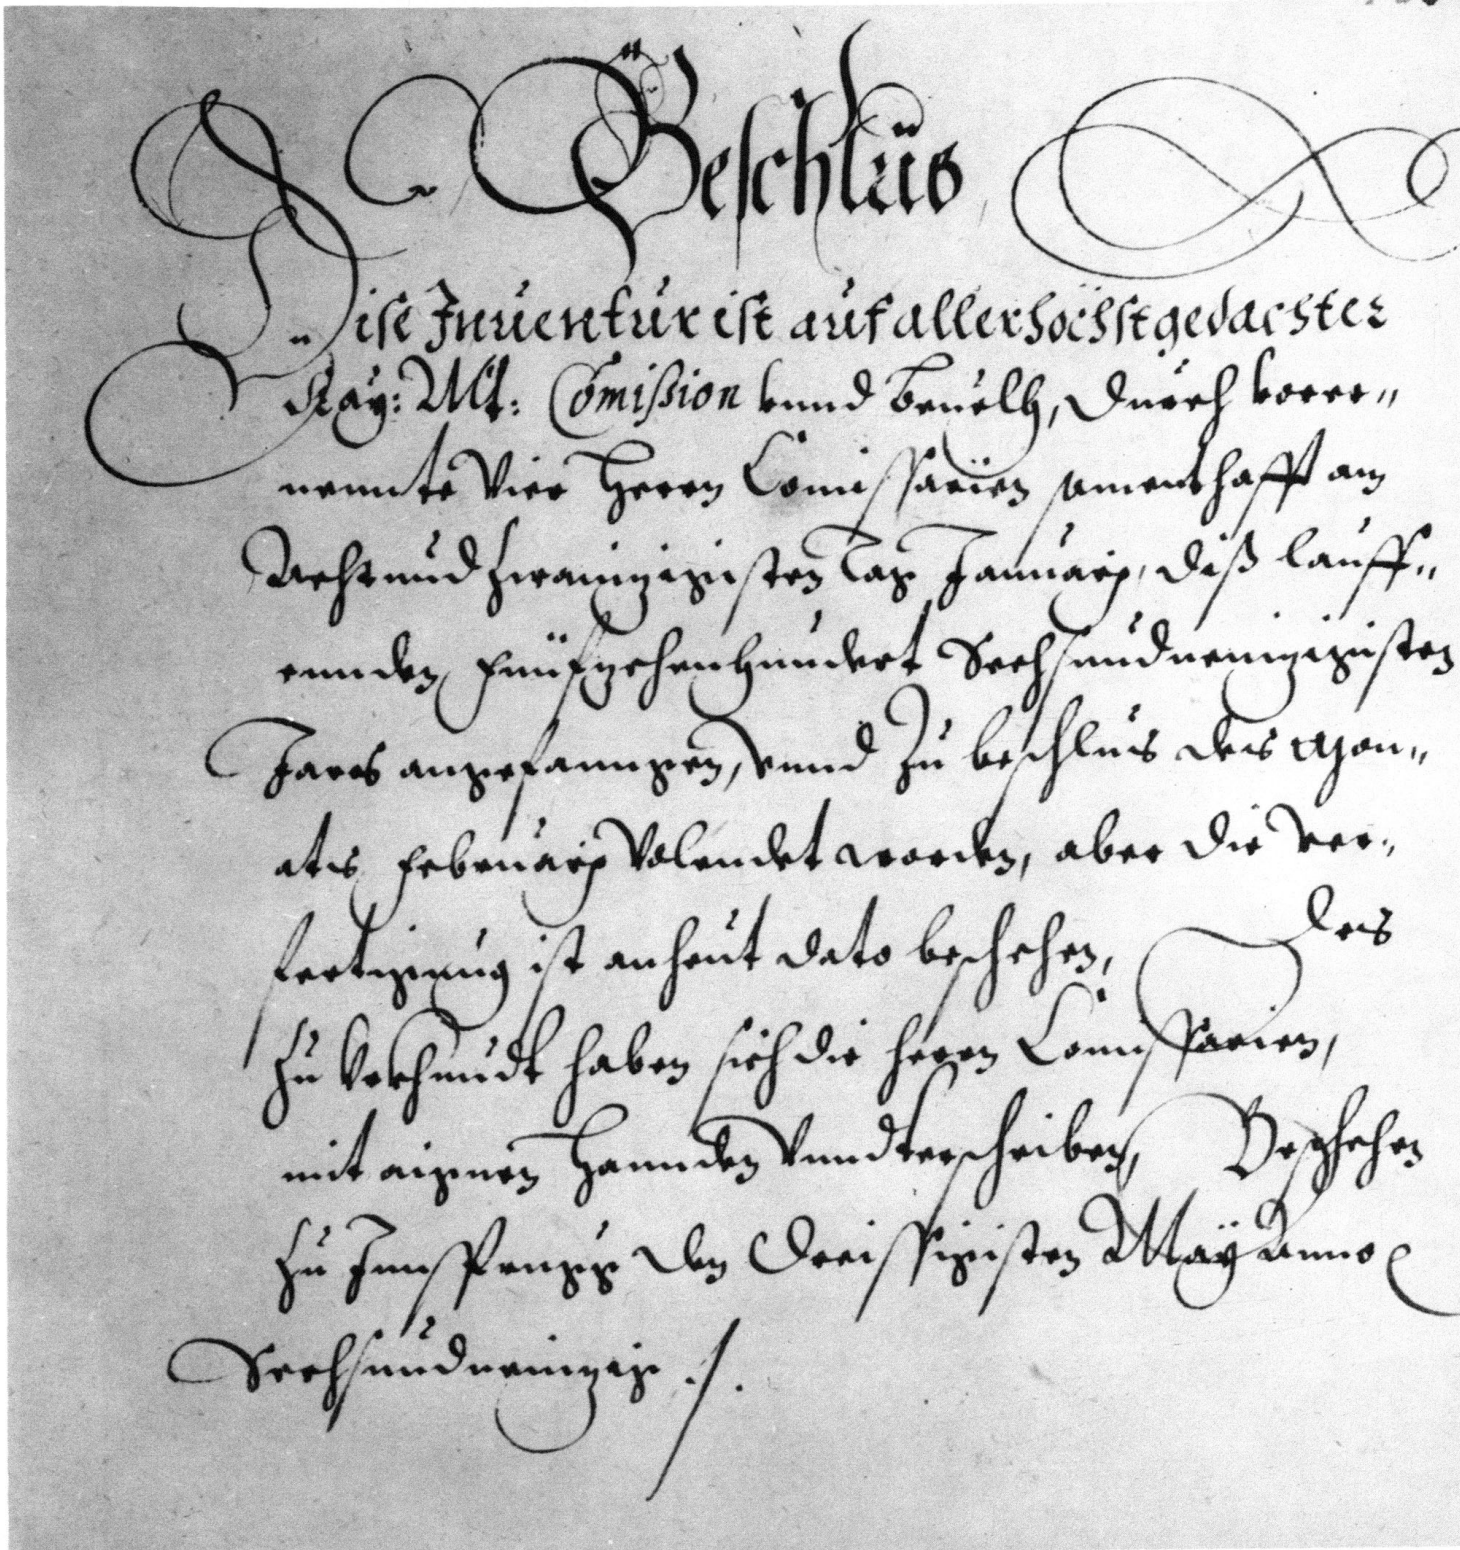 Beschlus
Dise Inuentur ist auf allerhöchstgedachter
Kay: Mt: Comißion vnnd beuelh, durch vorer„
nennte Vier Herrn Comissarien samenthafft am
Achtundzwainzigisten Tag Januarÿ, diß lauff„
ennden Fünfzehenhundert Sechsundneinzigisten
Jares angefanngen, vnnd Zu beschlus des Mon„
ats Februarÿ Volendet worden, aber die Ver„
fertigung ist an heut dato beschehen, Des
Zu Vrkhundt haben sich die herrn Comissarien,
mit aignen Hannden Vnndterschriben, Beschehen
Zu Innsprugg den Dreissigisten Maÿ Anno
Sechsundneinzig ./.